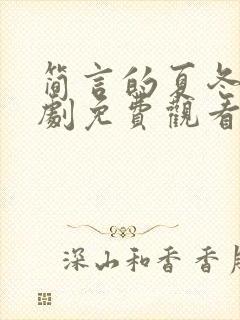 简言的夏冬
劇免費觀看
深山和香香